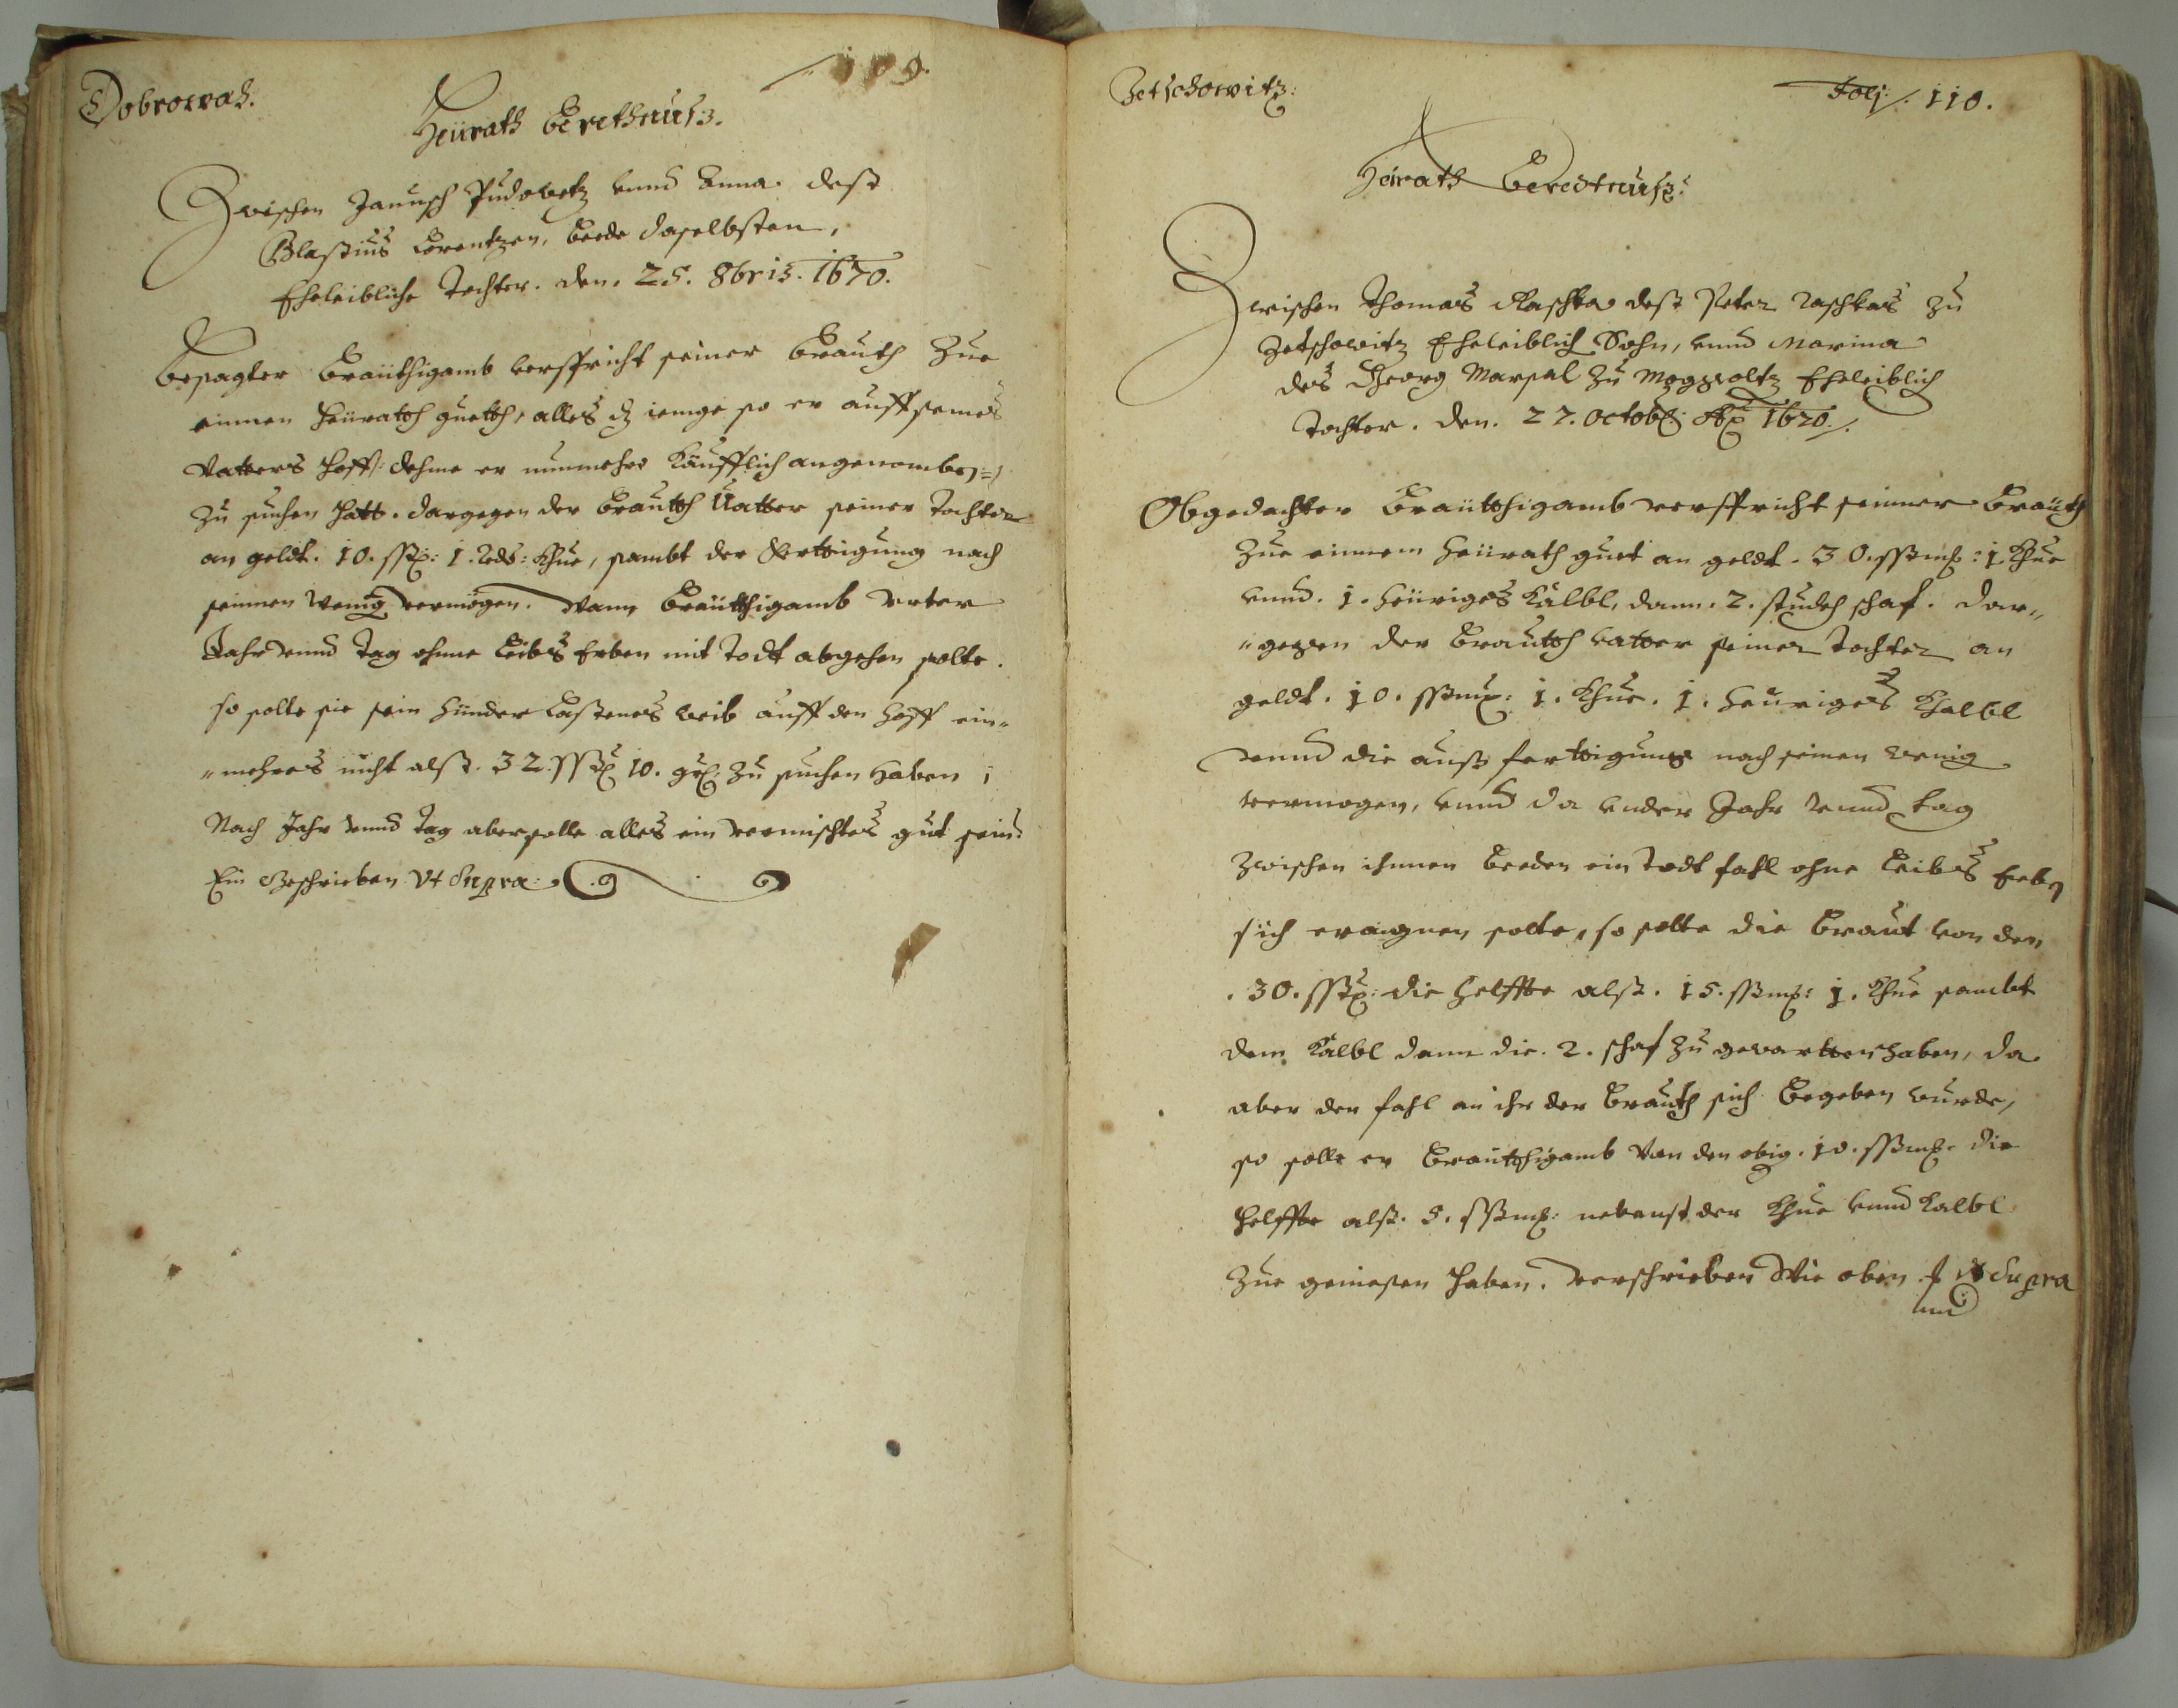 Dobrowah.
109.
Heürath Berethnus:
Zwischen Janusch Pudowetz vnnd Anna. deß
Blaßius Lorentzen, beede daselbsten,
Eheleibliche Tochter. den. 25. 8bris. 1670.
Besagter Breüthigamb verspricht seiner Brauth Zue
einnen Heürath gueth, alles dz ienige so er auff seines
Vatters Hoff: dehme er nunmehro Käufflich angenomben
zu suchen hatt. dargegen der Brauth Vatter seiner Tochter
an geldt. 10. ßß: 1. Khue, sambt der Fertigung nach
seinnen wenig vermögen. Wann Breüthigamb vnter
Jahr vnnd Tag ohnne Leibs Erben mit Todt abgehen solte.
so solte sie sein hünder Laßenes weib auff den Hoff ein-
mehres nicht alß. 32 ßß 10. gr: zu suchen haben;
Nach Jahr vnnd Tag aber solle alles ein vermischtes gut sein:
Ein Geschrieben Vt Supra.
Zetschowitz:
Foli: 110.
Heirath Beredtnus:
Zwischen Thomas Raschka deß Peter Raschkas zu
Zetschowitz Eheleiblich Sohn, vnnd Marina
des Georg Marsal zu Eheleiblich
Tochter. den. 27. Octob: Ao 1670.
Obgedachter Breütthigamb verspricht seinner Breüth
Zue einnem Heürath guet an geldt. 30. ßßmß: 1 Khue
vnnd. 1. Heüriges Kälbl, dann. 2. stuckh schaf. dar-
gegen der Brauth vatter seiner Tochter an
geldt. 10. ßßmß: 1. Khue. 1. Heüriges Khalbl
vnnd die auß fertigung nach seinen wenig
vermogen, vnnd da vnder Jahr vnnd tag
Zwischen ihnnen beeden ein Todt fahl ohne Leibs Erben
sich eraignen solte, so solte die Braut von den
30. ßß: die Helffte alß. 15. ßßmß: 1. Khue sambt
dem Kälbl dann die. 2. schaf zu gewartten haben, da
aber der fahl an ihr der Brauth sich begeben wurde,
so solle er Breüthigamb von den obig. 10. ßßmß. die
Helffte alß. 5. ßßmß: nebenst der Khue vnnd Kalbl
Zue geniessen haben. Verschrieben Wie oben Vt Supra